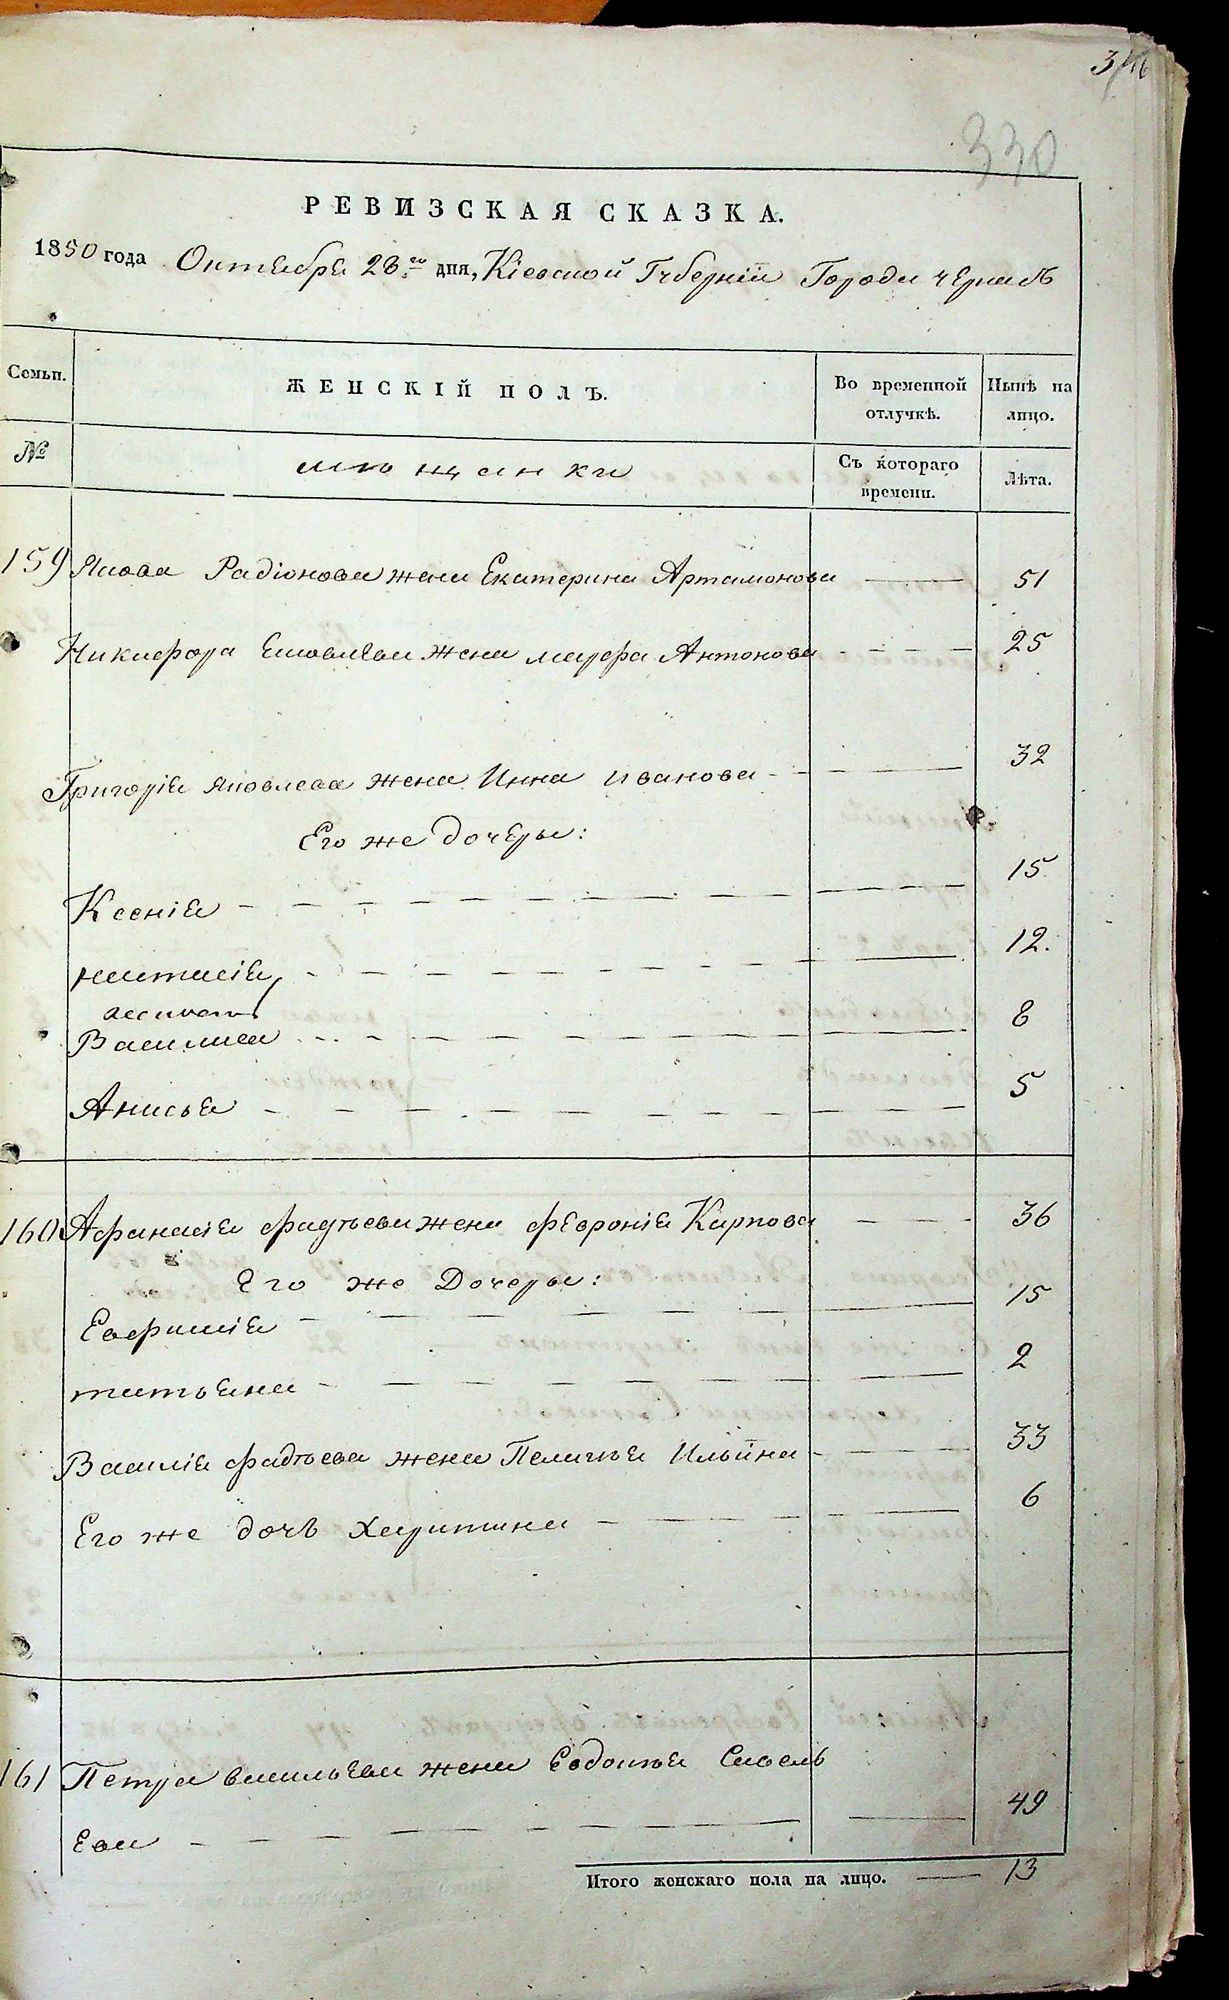 330
РЕВИЗСКАЯ СКАЗКА.
1850 года Октября 23го дня, Кіевской Губерніи Города Черкасъ
Семьи. ЖЕНСКІЙ ПОЛЪ. Во временной отлучкѣ. Нынѣ на лицо.
№ мѣщанки Съ котораго времени. Лѣта.
159 Якова Радіонова жена Екатерина Артамонова — 51
Никифора Яковлева жена марфа Антонова - - - - 25
Григорія Яковлева жена Анна иванова - - — — 32
Его же дочеры:
Ксенія — — — — — — — — 15
Настасія — — — — — — — — 12.
Василиса — — — — — — — — 8
Анисья — — — — — — — — 5
160 Афанасія фадѣева жена февронія Карпова — — - 36
Его же Дочеры:
Евфимія — — — — — — — 15
татьяна — — — — — — — 2
Василія фадѣева жена Пелагѣя Ильина - - — — 33
Его же дочь Харитина — — — — — 6
161 Петра васильева жена Евдокѣя Савель
ева — — — — — — — 49
Итого женскаго пола на лицо. — 13